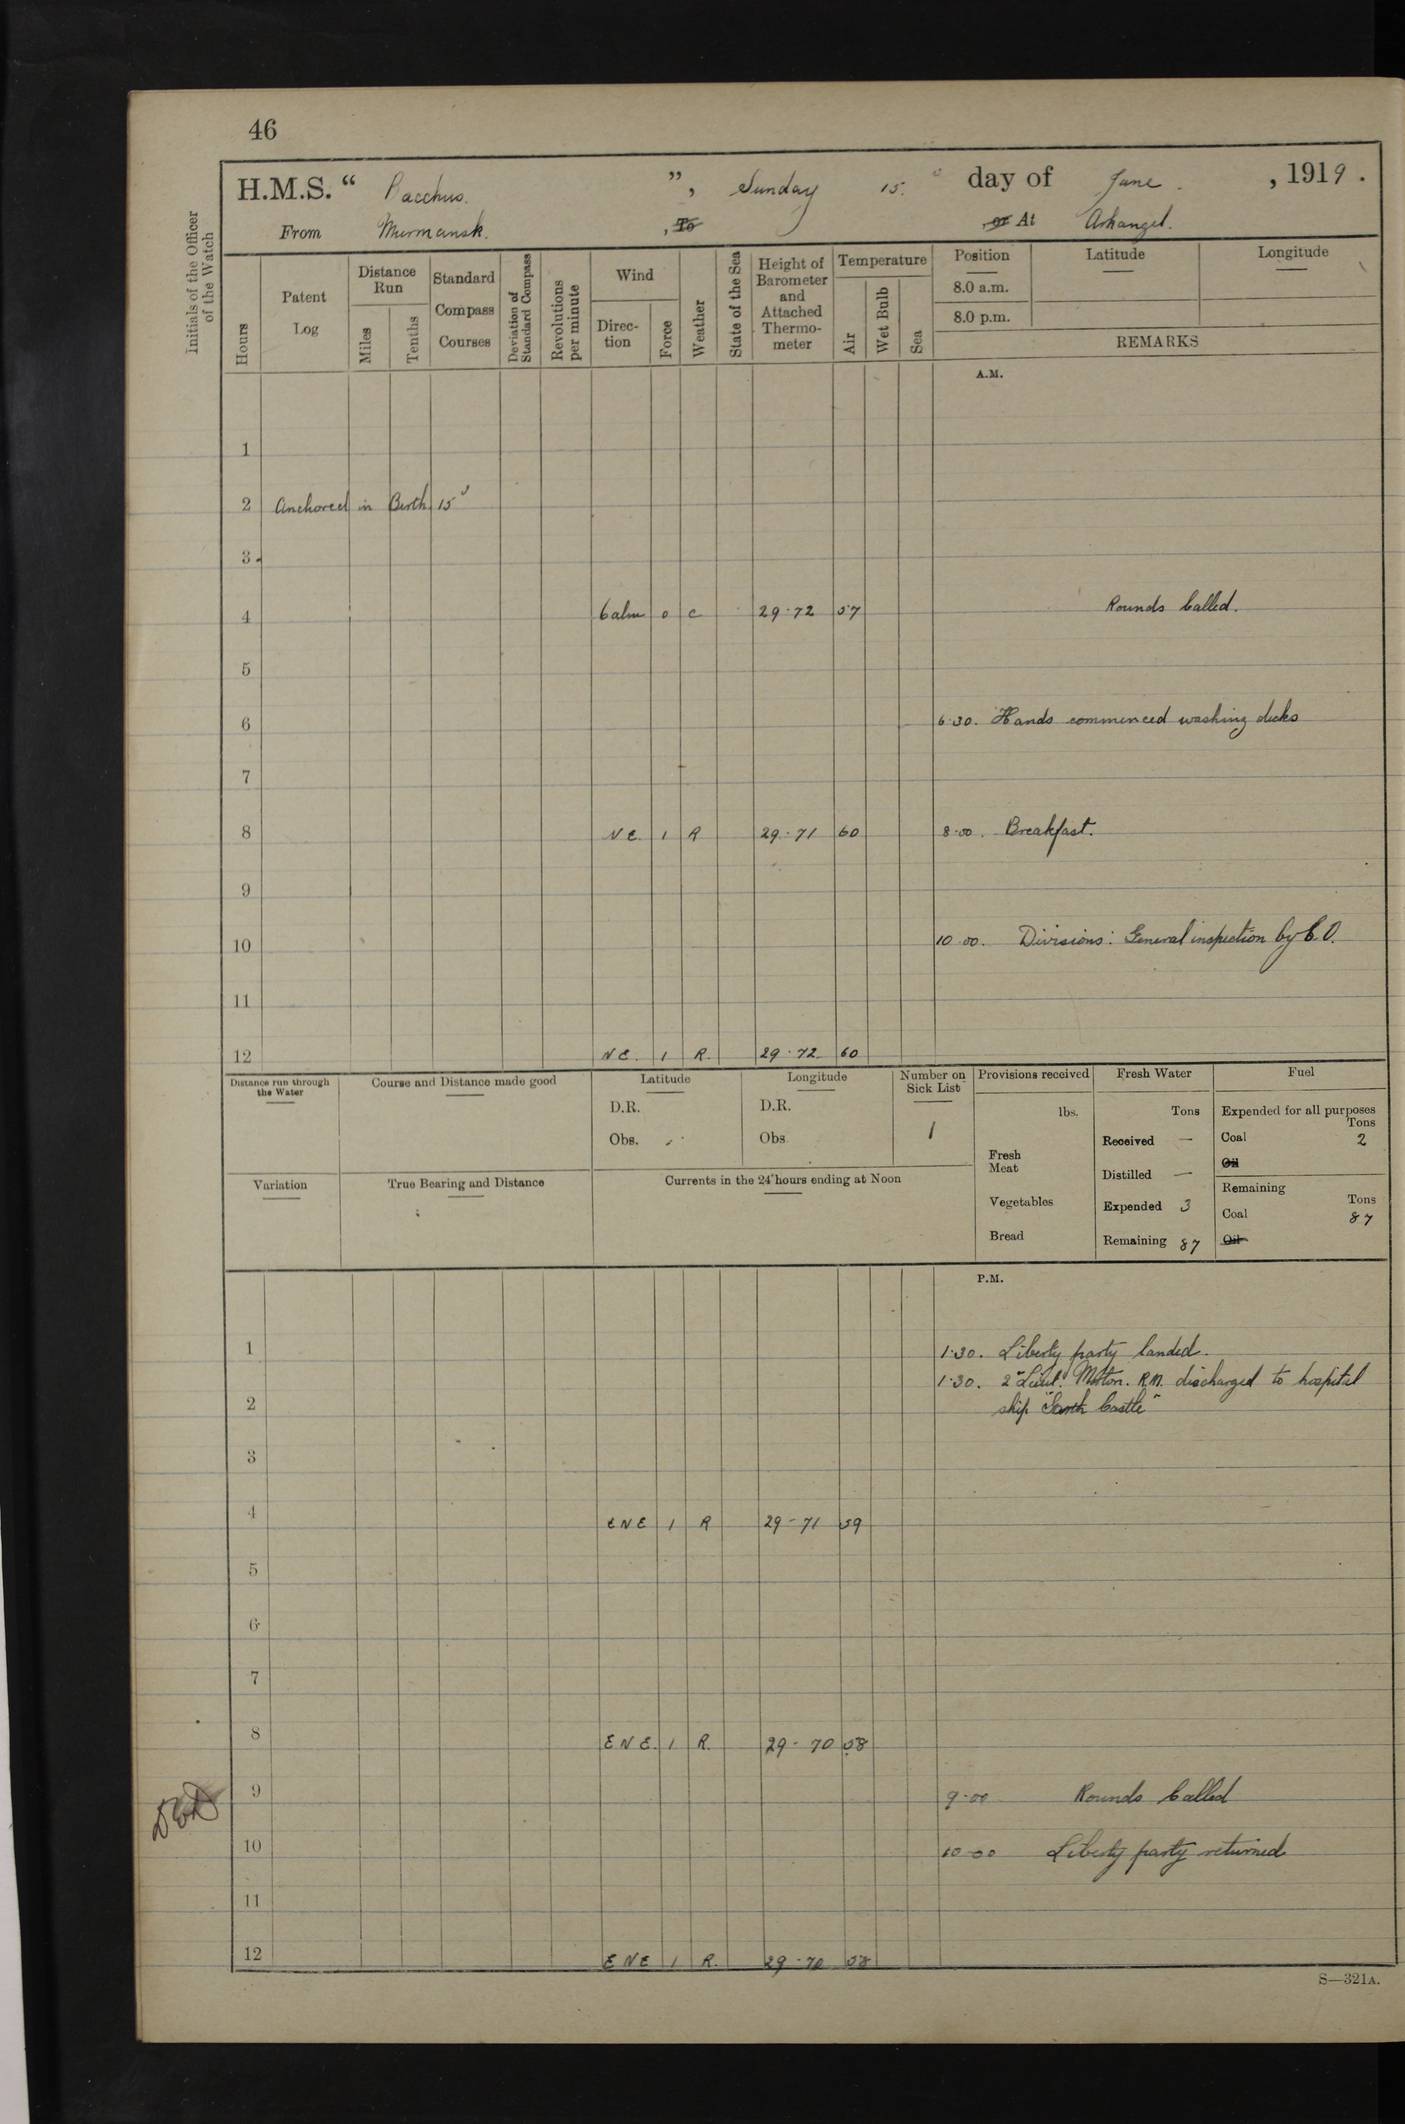 46
H.M.S. “ Bacchus. ”, Sunday 15. day of June. , 1919.
From Murmansk. , To or At Arkangel.
Initials of the Officer of the Watch
Hours
Patent Log
Distance Run
Miles
Tenths
Standard Compass Courses
Deviation of Standard Compass
Revolutions per minute
Wind
Direction
Force
Weather
State of the Sea
Height of Barometer and Attached Thermometer
Temperature
Air
Wet Bulb
Sea
Position
8.0 a.m.
8.0 p.m.
Latitude
Longitude
REMARKS
A.M.
1
2 Anchored in Berth 15
3
4 Calm 0 c 29.72 57 Rounds Called.
5
6 6.30. Hands commenced washing decks
7
8 NE. 1 R 29.71 60 8.00. Breakfast.
9
10 10.00. Divisions: General inspection by C.O.
11
12 NE. 1 R. 29.72 60
Distance run through the Water
Course and Distance made good
Latitude
D.R.
Obs.
Longitude
D.R.
Obs
Number on Sick List
1
Provisions received
lbs.
Fresh Meat
Vegetables
Bread
Fresh Water
Tons
Received —
Distilled —
Expended 3
Remaining 87
Fuel
Expended for all purposes
Tons
Coal 2
Oil
Remaining
Tons
Coal 87
Oil
Variation
True Bearing and Distance
Currents in the 24 hours ending at Noon
P.M.
1 1.30. Liberty party landed.
1.30. 2nd Lieut. R.M. discharged to hospital
2 ship Castle"
3
4 ENE 1 R 29-71 59
5
6
7
8 ENE. 1 R. 29-70 58
9 9.00 Rounds Called
10 10-00 Liberty party returned
11
12 ENE 1 R. 29-70 58
S—321A.